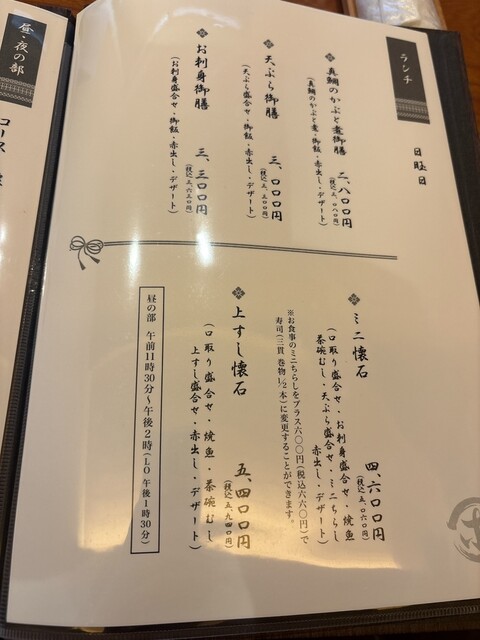 ランチ
日曜日
真鯛のかぶと煮御膳 二、八〇〇円
(税込 三、〇八〇円)
(真鯛のかぶと煮・御飯・赤出し・デザート)
天ぷら御膳 三、〇〇〇円
(税込 三、三〇〇円)
(天ぷら盛合せ・御飯・赤出し・デザート)
お刺身御膳 三、三〇〇円
(税込 三、六三〇円)
(お刺身盛合せ・御飯・赤出し・デザート)
ミニ懐石 四、六〇〇円
(税込 五、〇六〇円)
(口取り盛合せ・お刺身盛合せ・焼魚
茶碗むし・天ぷら盛合せ・ミニちらし
赤出し・デザート)
※お食事のミニちらしをプラス六〇〇円(税込六六〇円)で
寿司(三貫 巻物1/2本)に変更することができます。
上すし懐石 五、四〇〇円
(税込 五、九四〇円)
(口取り盛合せ・焼魚・茶碗むし
上すし盛合せ・赤出し・デザート)
昼の部 午前11時30分〜午後2時(LO 午後1時30分)
昼・夜の部
コース